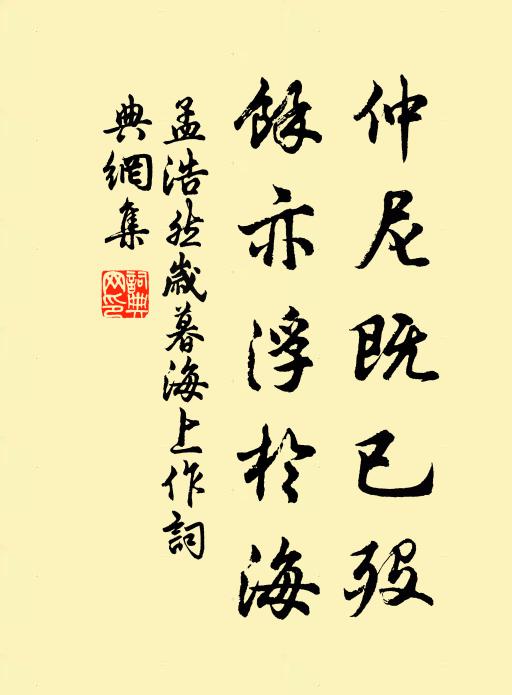 仲尼既已歿
餘亦浮於海
孟浩然歲暮海上作詞
典網集
詞典网印